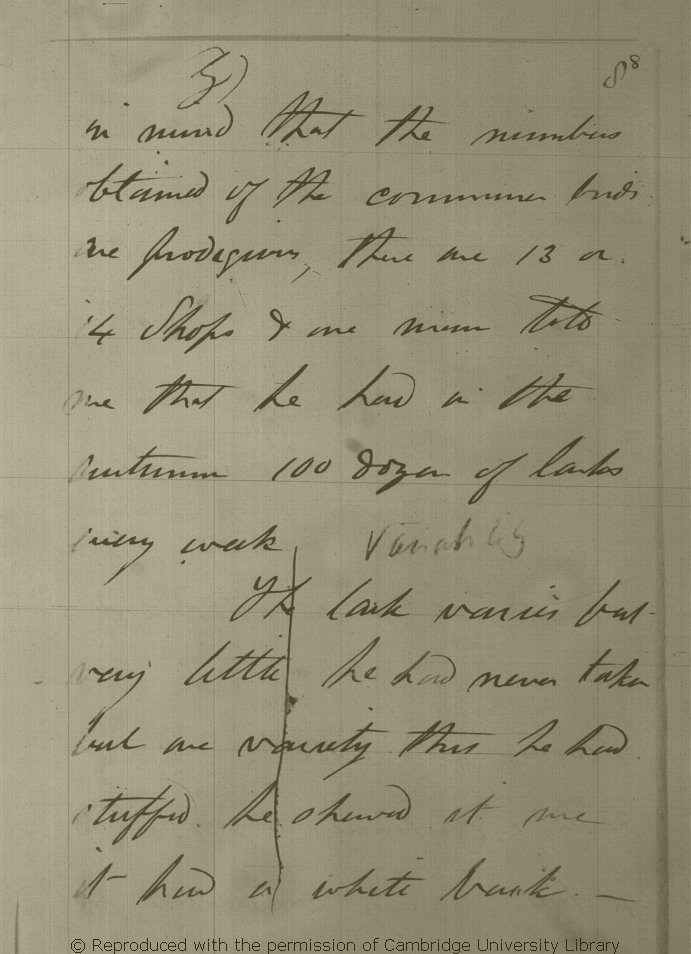 3)
88
in mind that the numbers
obtained of the commoner birds
are prodigious, there are 13 or
14 Shops & one man told
me that he had in the
autumn 100 dozen of larks
every week
Variability
The lark varies but
very little he had never taken
but one variety this he had
stuffed. he shewed it me
it had a white back. —
© Reproduced with the permission of Cambridge University Library